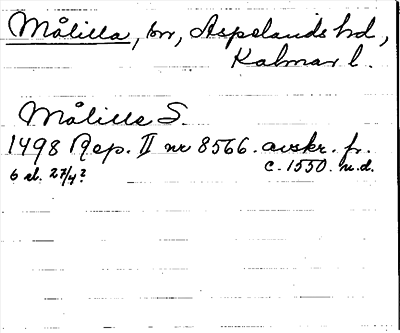 Målilla, sn, Aspelands hd,
Kalmar l.
Målilla S.
1498 Rep. II nr 8566. avskr. fr.
6 el. 27/4? c. 1550. m.d.